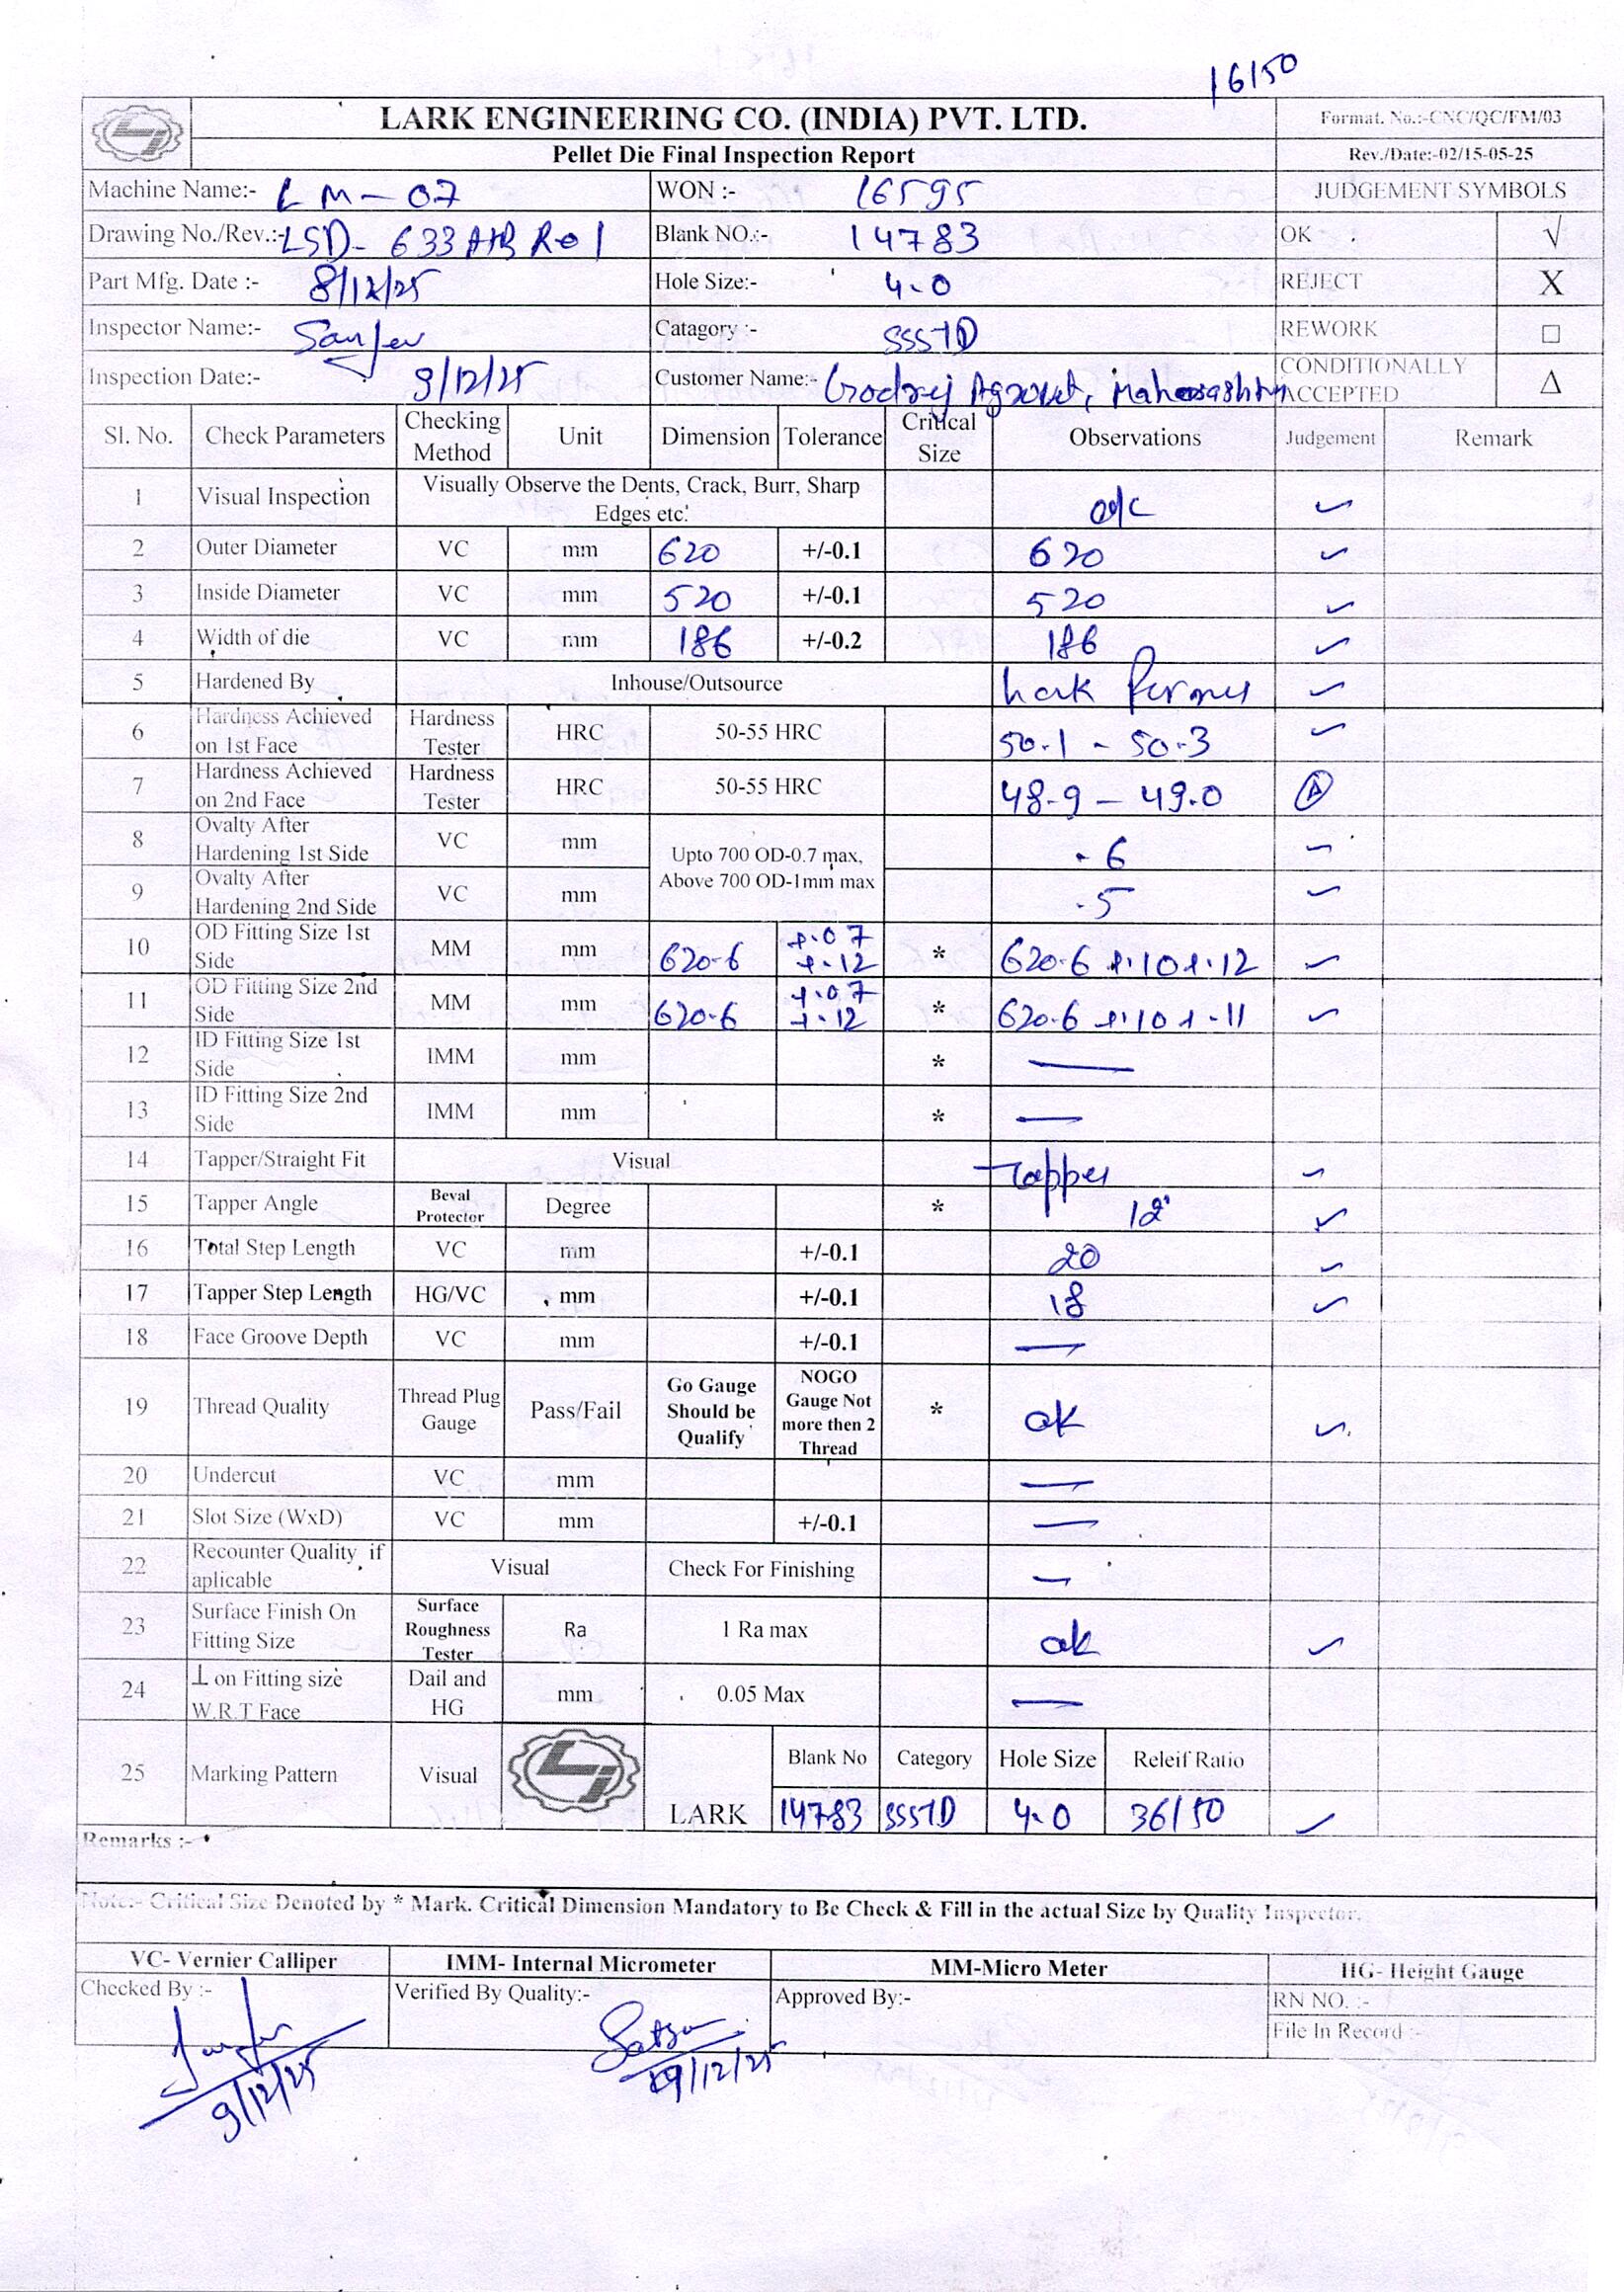 16/50
LARK ENGINEERING CO. (INDIA) PVT. LTD.
Format. No.:-CNC/QC/FM/03
Pellet Die Final Inspection Report
Rev./Date:-02/15-05-25
Machine Name:- LM-07 WON :- 16595 JUDGEMENT SYMBOLS
Drawing No./Rev.:- LSD-633 A1B R01 Blank NO.:- 14783 OK √
Part Mfg. Date :- 8/12/25 Hole Size:- 4.0 REJECT X
Inspector Name:- Sanjev Catagory :- SSSTD REWORK □
Inspection Date:- 9/12/25 Customer Name:- Godrej Agrovet, Maharashtra CONDITIONALLY ACCEPTED Δ
Sl. No. Check Parameters Checking Method Unit Dimension Tolerance Critical Size Observations Judgement Remark
1 Visual Inspection Visually Observe the Dents, Crack, Burr, Sharp Edges etc. ok ✓
2 Outer Diameter VC mm 620 +/-0.1 620 ✓
3 Inside Diameter VC mm 520 +/-0.1 520 ✓
4 Width of die VC mm 186 +/-0.2 186 ✓
5 Hardened By Inhouse/Outsource ✓
6 Hardness Achieved on 1st Face Hardness Tester HRC 50-55 HRC 50.1 - 50.3 ✓
7 Hardness Achieved on 2nd Face Hardness Tester HRC 50-55 HRC 48.9 - 49.0
8 Ovalty After Hardening 1st Side VC mm Upto 700 OD-0.7 max, Above 700 OD-1mm max .6 ✓
9 Ovalty After Hardening 2nd Side VC mm .5 ✓
10 OD Fitting Size 1st Side MM mm 620.6 +.07 +.12 * 620.6 +.10 +.12 ✓
11 OD Fitting Size 2nd Side MM mm 620.6 +.07 +.12 * 620.6 +.10 +.11 ✓
12 ID Fitting Size 1st Side IMM mm * —
13 ID Fitting Size 2nd Side IMM mm * —
14 Tapper/Straight Fit Visual Tapper ✓
15 Tapper Angle Beval Protector Degree * 12° ✓
16 Total Step Length VC mm +/-0.1 20 ✓
17 Tapper Step Length HG/VC mm +/-0.1 18 ✓
18 Face Groove Depth VC mm +/-0.1 —
19 Thread Quality Thread Plug Gauge Pass/Fail Go Gauge Should be Qualify NOGO Gauge Not more then 2 Thread * ok ✓
20 Undercut VC mm —
21 Slot Size (WxD) VC mm +/-0.1 —
22 Recounter Quality if aplicable Visual Check For Finishing —
23 Surface Finish On Fitting Size Surface Roughness Tester Ra 1 Ra max ok ✓
24 ⊥ on Fitting size W.R.T Face Dail and HG mm 0.05 Max —
25 Marking Pattern Visual LARK Blank No Category Hole Size Releif Ratio
14783 SSSTD 4.0 36/50 ✓
Remarks :-
Note:- Critical Size Denoted by * Mark. Critical Dimension Mandatory to Be Check & Fill in the actual Size by Quality Inspector.
VC- Vernier Calliper IMM- Internal Micrometer MM-Micro Meter HG- Height Gauge
Checked By :- Verified By Quality:- Approved By:- RN NO. :-
File In Record :-
9/12/25 09/12/25